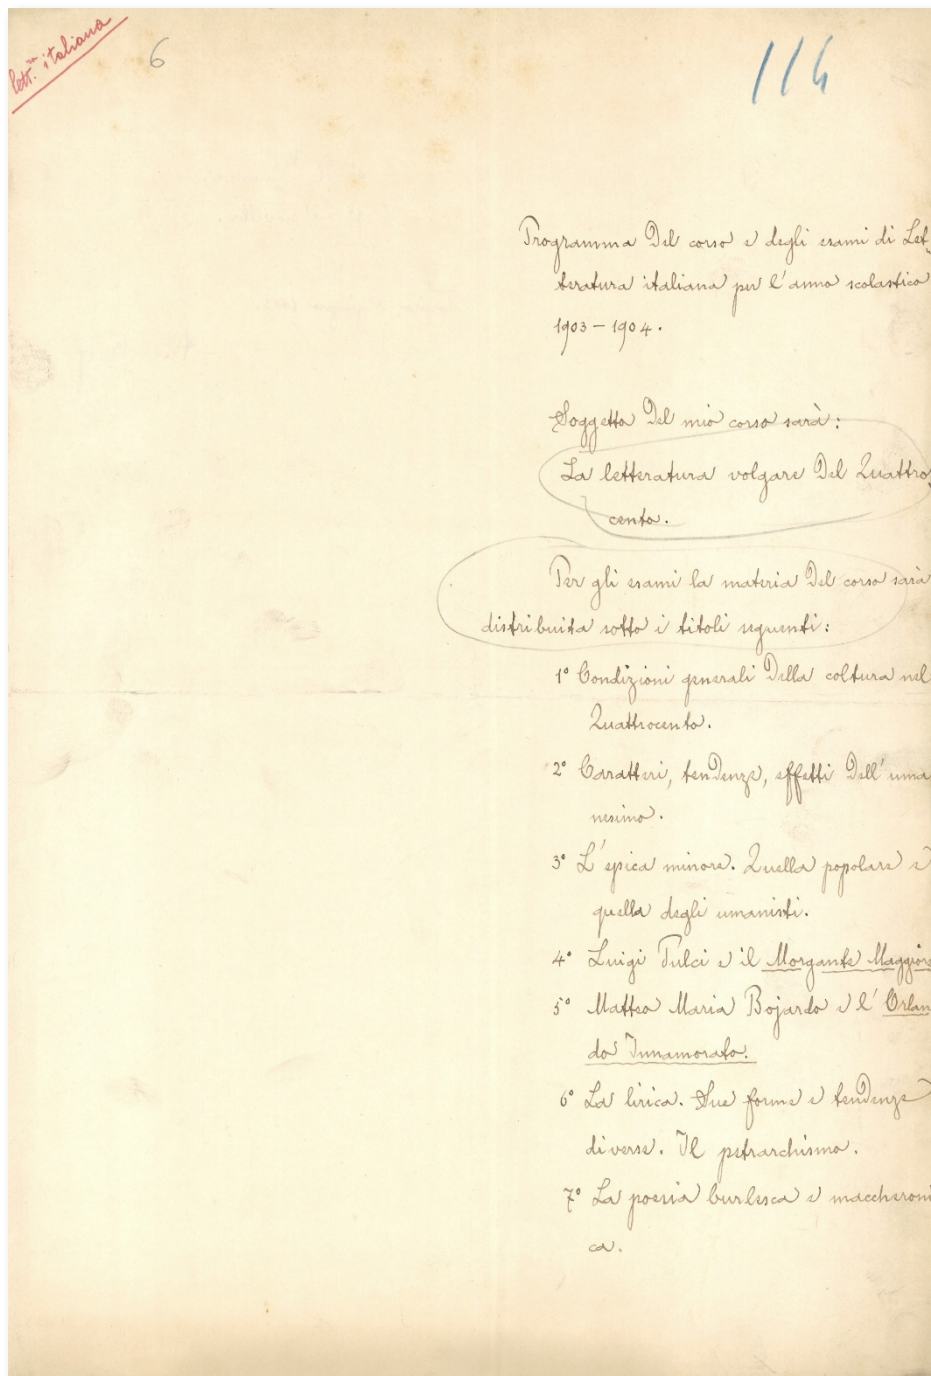 lett.ra italiana
6
114
Programma del corso e degli esami di Let-
teratura italiana per l'anno scolastico
1903-1904.
Soggetto del mio corso sarà:
La letteratura volgare del Quattro-
cento.
Per gli esami la materia del corso sarà
distribuita sotto i titoli seguenti:
1° Condizioni generali della coltura nel
Quattrocento.
2° Caratteri, tendenze, effetti dell'uma
nesimo.
3° L'epica minore. Quella popolare e
quella degli umanisti.
4° Luigi Pulci e il Morgante Maggiore
5° Matteo Maria Bojardo e l'Orlan
do Innamorato.
6° La lirica. Sue forme e tendenze
diverse. Il petrarchismo.
7° La poesia burlesca e maccheroni
ca.